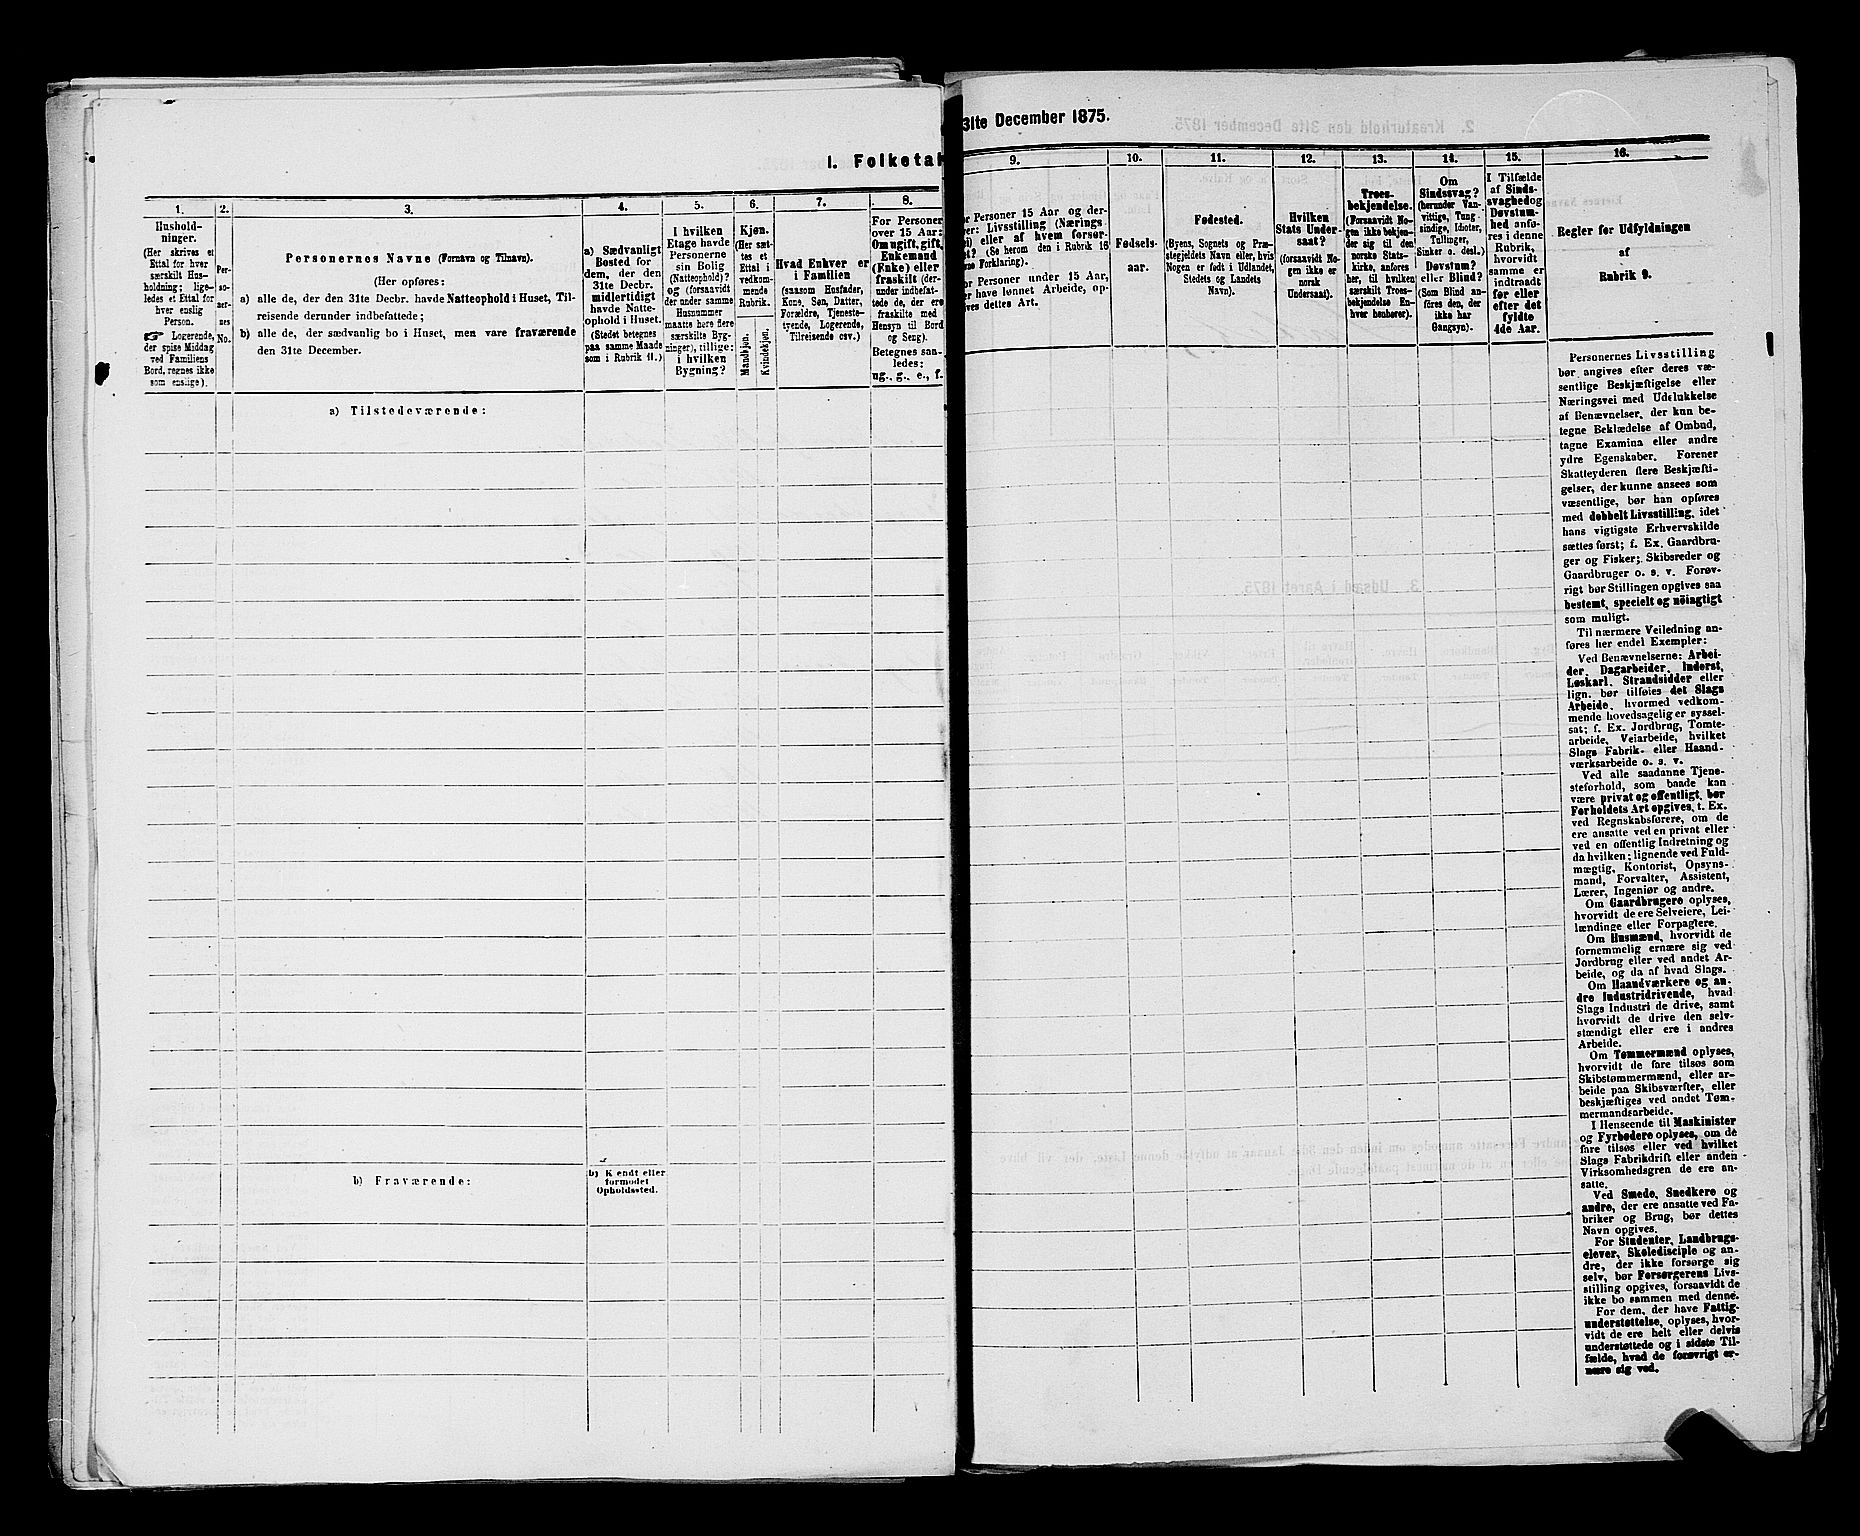 I. Folketal
31te December 1875.
1.
Hushold-
ninger.
(Her skrives et
Ettal for hver
særskilt Hus-
holdning; lige-
ledes et Ettal for
hver enslig
Person.
☞ Logerende,
der spise Middag
ved Familiens
Bord, regnes ikke
som enslige).
2.
Per-
so-
ner-
nes
No.
3.
Personernes Navne (Fornavn og Tilnavn).
(Her opføres:
a) alle de, der den 31te Decbr. havde Natteophold i Huset, Til-
reisende derunder indbefattede;
b) alle de, der sædvanlig bo i Huset, men vare fraværende
den 31te December.
4.
a) Sædvanligt
Bosted for
dem, der den
31te Decbr.
midlertidigt
havde Natte-
ophold i Huset.
(Stedet betegnes
paa samme Maade
som i Rubrik 11.)
5.
I hvilken
Etage havde
Personerne
sin Bolig
(Natteophold)?
og (forsaavidt
der under samme
Husnummer
maatte høre flere
særskilte Byg-
ninger), tillige:
i hvilken
Bygning?
6.
Kjøn.
(Her sæt-
tes et
Ettal i
vedkom-
mende
Rubrik.
Mandkjøn.
Kvindekjøn.
7.
Hvad Enhver er
i Familien
(saasom Husfader,
Kone, Søn, Datter,
Forældre, Tjeneste-
tyende, Logerende,
Tilreisende osv.)
8.
For Personer
over 15 Aar:
Om ugift, gift,
Enkemand
(Enke) eller
fraskilt (der-
under indbefat-
tede de, der ere
fraskilte med
Hensyn til Bord
og Seng).
Betegnes saa-
ledes:
ug., g., e., f.
a) Tilstedeværende:
b) Fraværende:
b) Kjendt eller
formodet
Opholdssted.
9.
Personer 15 Aar og der-
over: Livsstilling (Nærings
eller af hvem forsør-
(Se herom den i Rubrik 16
Forklaring).
Personer under 15 Aar,
have lønnet Arbeide, op-
gives dettes Art.
10.
Fødsels-
aar.
11.
Fødested.
(Byens, Sognets og Præ-
stegjeldets Navn eller, hvis
Nogen er født i Udlandet,
Stedets og Landets
Navn).
12.
Hvilken
Stats Under-
saat?
(forsaavidt No-
gen ikke er
norsk
Undersaat).
13.
Troes-
bekjendelse.
(Forsaavidt No-
gen ikke bekjen-
der sig til den
norske Stats-
kirke, anføres
her, til hvilken
særskilt Troes-
bekjendelse En-
hver henhører).
14.
Om
Sindssvag?
(herunder Van-
vittige, Tung
sindige, Idioter,
Tullinger,
Sinker o. desl.)
Døvstum?
eller Blind?
(Som Blind an-
føres den, der
ikke har
Gangsyn).
15.
I Tilfælde
af Sinds-
svaghed og
Døvstum-
hed anfø-
res i denne
Rubrik,
hvorvidt
samme er
indtraadt
før eller
efter det
fyldte
4de Aar.
16.
Regler for Udfyldningen
af
Rubrik 9.
Personernes Livsstilling
bør angives efter deres væ-
sentlige Beskjæftigelse eller
Næringsvei med Udelukkelse
af Benævnelser, der kun be-
tegne Beklædelse af Ombud,
tagne Examina eller andre
ydre Egenskaber. Forener
Skatteyderen flere Beskjæfti-
gelser, der kunne ansees som
væsentlige, bør han opføres
med dobbelt Livsstilling, idet
hans vigtigste Erhvervskilde
sættes først; f. Ex. Gaardbru-
ger og Fisker; Skibsreder og
Gaardbruger o. s. v. Forøv-
rigt bør Stillingen opgives saa
bestemt, specielt og nöiagtigt
som muligt.
Til nærmere Veiledning an-
føres her endel Exempler:
Ved Benævnelserne: Arbei-
der, Dagarbeider, Inderst,
Løskarl, Strandsidder eller
lign. bør tilføies det Slags
Arbeide, hvormed vedkom-
mende hovedsagelig er syssel-
sat; f. Ex. Jordbrug, Tomte-
arbeide, Veiarbeide, hvilket
Slags Fabrik- eller Haand-
værksarbeide o. s. v.
Ved alle saadanne Tjene-
steforhold, som baade kan
være privat og offentligt, bør
Forholdets Art opgives, t. Ex.
ved Regnskabsførere, om de
ere ansatte ved en privat eller
ved en offentlig Indretning og
da hvilken; lignende ved Fuld-
mægtig, Kontorist, Opsyns-
mand, Forvalter, Assistent,
Lærer, Ingeniør og andre.
Om Gaardbrugere oplyses,
hvorvidt de ere Selveiere, Lei-
lændinge eller Forpagtere.
Om Husmænd, hvorvidt de
fornemmelig ernære sig ved
Jordbrug eller ved andet Ar-
beide, og da af hvad Slags.
Om Haandværkere og an-
dre Industridrivende, hvad
Slags Industri de drive, samt
hvorvidt de drive den selv-
stændigt eller ere i andres
Arbeide.
Om Tømmermænd oplyses,
hvorvidt de fare tilsøs som
Skibstømmermænd, eller ar-
beide paa Skibsværfter, eller
beskjæftiges ved andet Tøm-
mermandsarbeide.
I Henseende til Maskinister
og Fyrbødere oplyses, om de
fare tilsøs eller ved hvilket
Slags Fabrikdrift eller anden
Virksomhedsgren de ere an-
satte.
Ved Smede, Snedkere og
andre, der ere ansatte ved Fa-
briker og Brug, bør dettes
Navn opgives.
For Studenter, Landbrugs-
elever, Skoledisciple og an-
dre, der ikke forsørge sig
selv, bør Forsørgerens Livs-
stilling opgives, forsaavidt de
ikke bo sammen med denne.
For dem, der have Fattig-
understøttelse, oplyses, hvor-
vidt de ere helt eller delvis
understøttede og i sidste Til-
fælde, hvad de forøvrigt er-
nære sig ved.